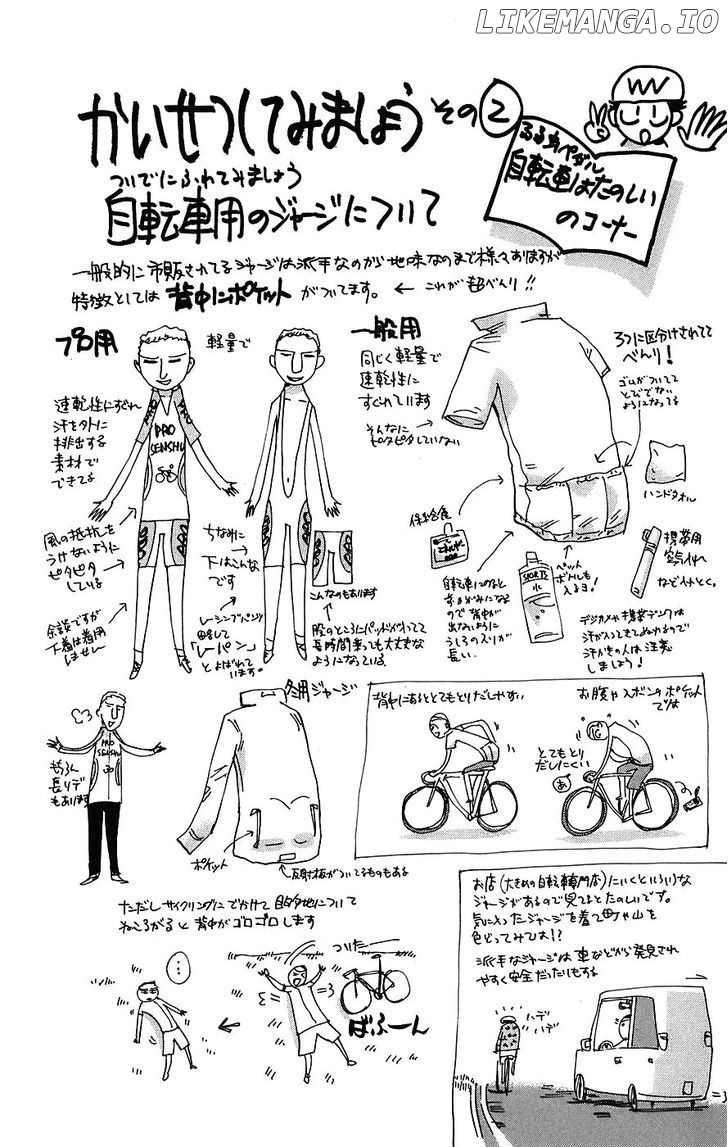 LIKEMANGA.IO
かいせつしてみましょう その2
るるるペダル
自転車はたのしい
のコーナー
ついでにふれてみましょう
自転車用のジャージについて
一般的に市販されてるジャージは派手なのから地味なのまで様々ありますが
特徴としては 背中にポケット がついてます。 ← これが超べんり!!
プロ用
軽量で
速乾性にすぐれ
汗を外に
排出する
素材で
できてる
PRO
SENSHU
風の抵抗を
うけないように
ピタピタ
している
余談ですが
下着は着用
しません
ちなみに
下はこんな
です
レーシングパンツ
略して
「レーパン」
とよばれています。
こんなのもあります
股のところにパッドが入ってて
長時間乗っても大丈夫な
ようになっている。
一般用
同じく軽量で
速乾性に
すぐれています
そんなに
ピタピタしていない
3つに区分けされてて
べんり!
ゴムがついてて
とびでない
ようになってる
ハンドタオル
補給食
SPORTS
水
ペット
ボトルも
入るヨ!
携帯用
空気入れ
などなど。
自転車にのると
前かがみになる
ので背中が
出ないように
うしろのスソが
長い。
デジカメや携帯デンワは
汗が入ってきてぬれるので
汗かきの人は注意
しましょう!
PRO
SENSHU
もちろん
長ソデ
もあります
冬用ジャージ
ポケット
反射板がついてるものもある
背中にあるととてもとりだしやすい
お腹やズボンのポケット
では
とてもとり
だしにくい
あ
ただしサイクリングにでかけて目的地について
ねころがると背中がゴロゴロします
…
ついたー
ばふーん
お店(大きめの自転車専門店)にいくといろいろな
ジャージがあるので見てるとたのしいです。
気に入ったジャージを着て町や山を
色どってみては!?
派手なジャージは車などから発見され
やすく安全だったりもする
ハデ
ハデ